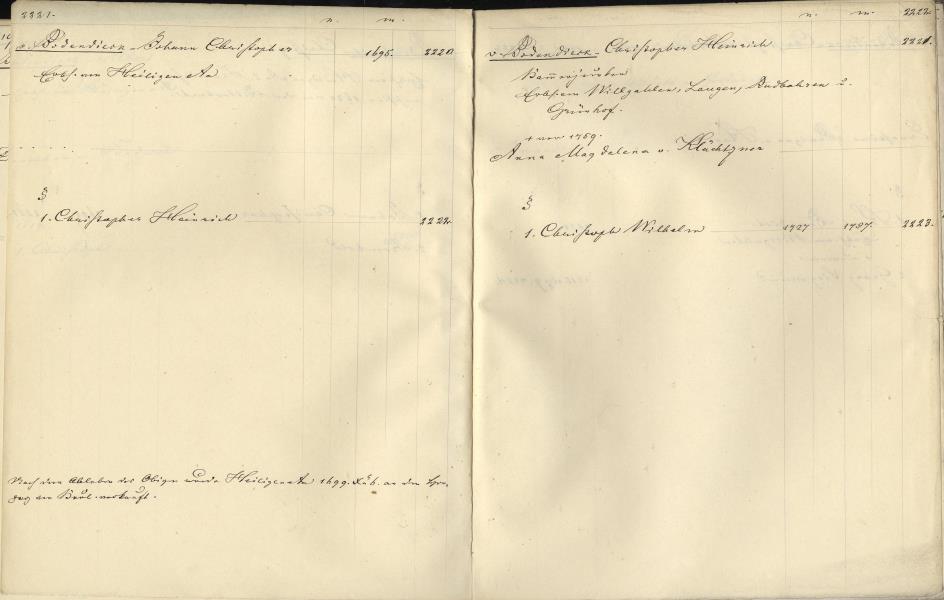 2221.
n. m.
v. Bodendieck - Johann Christopher 1695. 2220
Erbh. von Heiligen Aa
§
1. Christopher Heinrich 2222.
Nach dem Ableben des Obigen wurde Heiligen Aa 1699. Lüb. an den Her-
zog von verkauft.
n. m. 2222.
v. Bodendieck - Christopher Heinrich 2221.
Kammerjunker
Erbherr Willgahlen, Laugen, Rudbahren u.
Grünhof.
+ vor 1759.
Anna Magdelena v. Klüchtzner
§
1. Christoph Wilhelm 1727 1787. 2223.